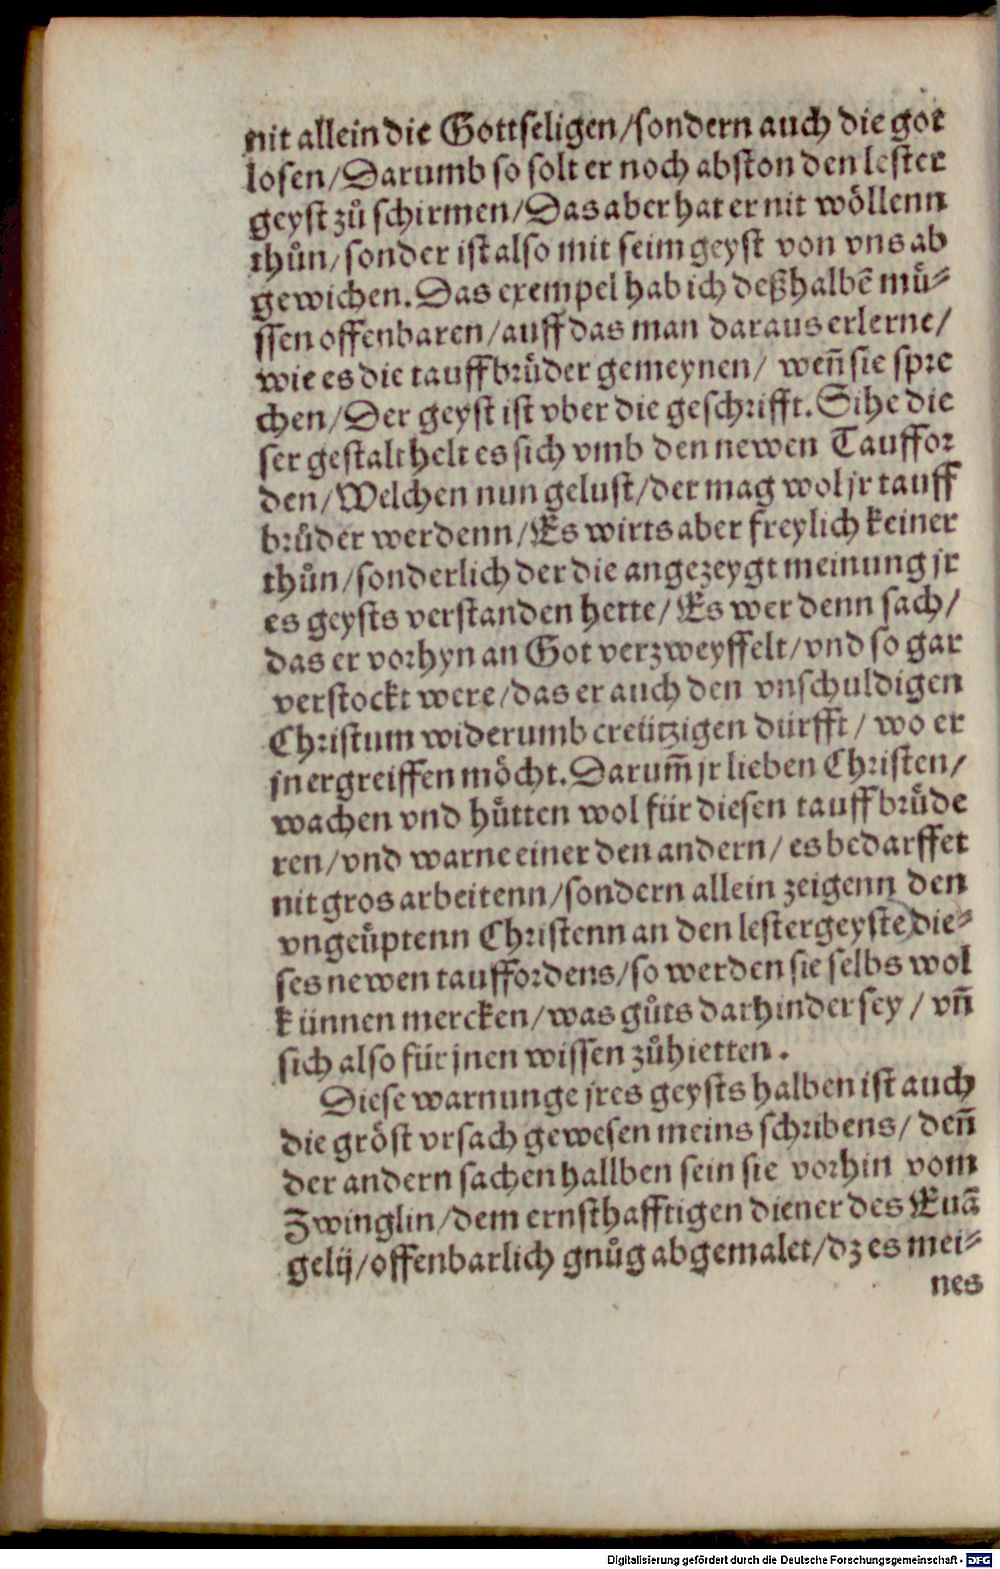 nit allein die Gottseligen/sondern auch die got
losen/Darumb so solt er noch abston den lester
geyst zů schirmen/Das aber hat er nit wöllenn
thůn/sonder ist also mit seim geyst von vns ab
gewichen. Das exempel hab ich deßhalbẽ mů⸗
ssen offenbaren/auff das man daraus erlerne/
wie es die tauffbrůder gemeynen/ weñ sie spre
chen/Der geyst ist vber die geschrifft. Sihe die
ser gestalt helt es sich vmb den newen Tauffor
den/Welchen nun gelust/der mag wol jr tauff
brůder werdenn/Es wirts aber freylich keiner
thůn/sonderlich der die angezeygt meinung jr
es geysts verstanden hette/Es wer denn sach/
das er vorhyn an Got verzweyffelt/vnd so gar
verstockt were/das er auch den vnschuldigen
Christum widerumb creützigen dürfft/ wo er
jn ergreiffen möcht. Darum̃ jr lieben Christen/
wachen vnd hůtten wol für diesen tauffbrůde
ren/vnd warne einer den andern/ es bedarffet
nit gros arbeitenn/sondern allein zeigenn den
vngeůptenn Christenn an den lestergeyste die⸗
ses newen tauffordens/so werden sie selbs wol
künnen mercken/was gůts darhinder sey/ vñ
sich also für jnen wissen zůhietten.
Diese warnunge jres geysts halben ist auch
die gröst vrsach gewesen meins schribens/ deñ
der andern sachen hallben sein sie vorhin vom
Zwinglin/dem ernsthafftigen diener des Euã
gelij/offenbarlich gnůg abgemalet/dz es mei⸗
nes
Digitalisierung gefördert durch die Deutsche Forschungsgemeinschaft - DFG